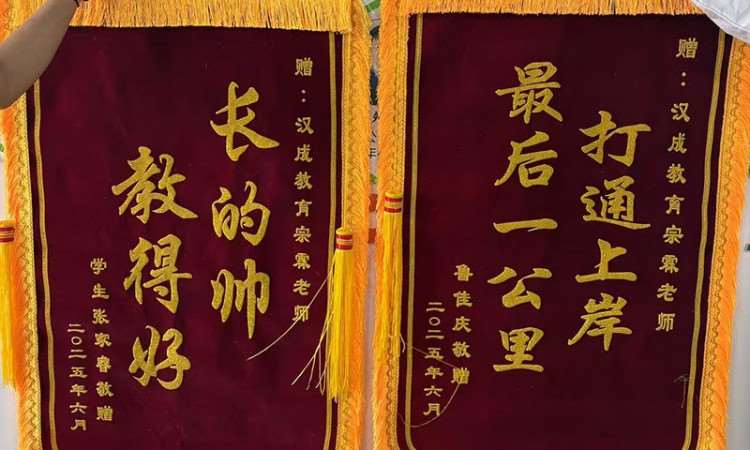 赠：汉成教育宗霖老师
长的帅
教得好
学生张家睿敬赠
二〇二五年六月
赠：汉成教育宗霖老师
打通上岸
最后一公里
鲁佳庆敬赠
二〇二五年六月